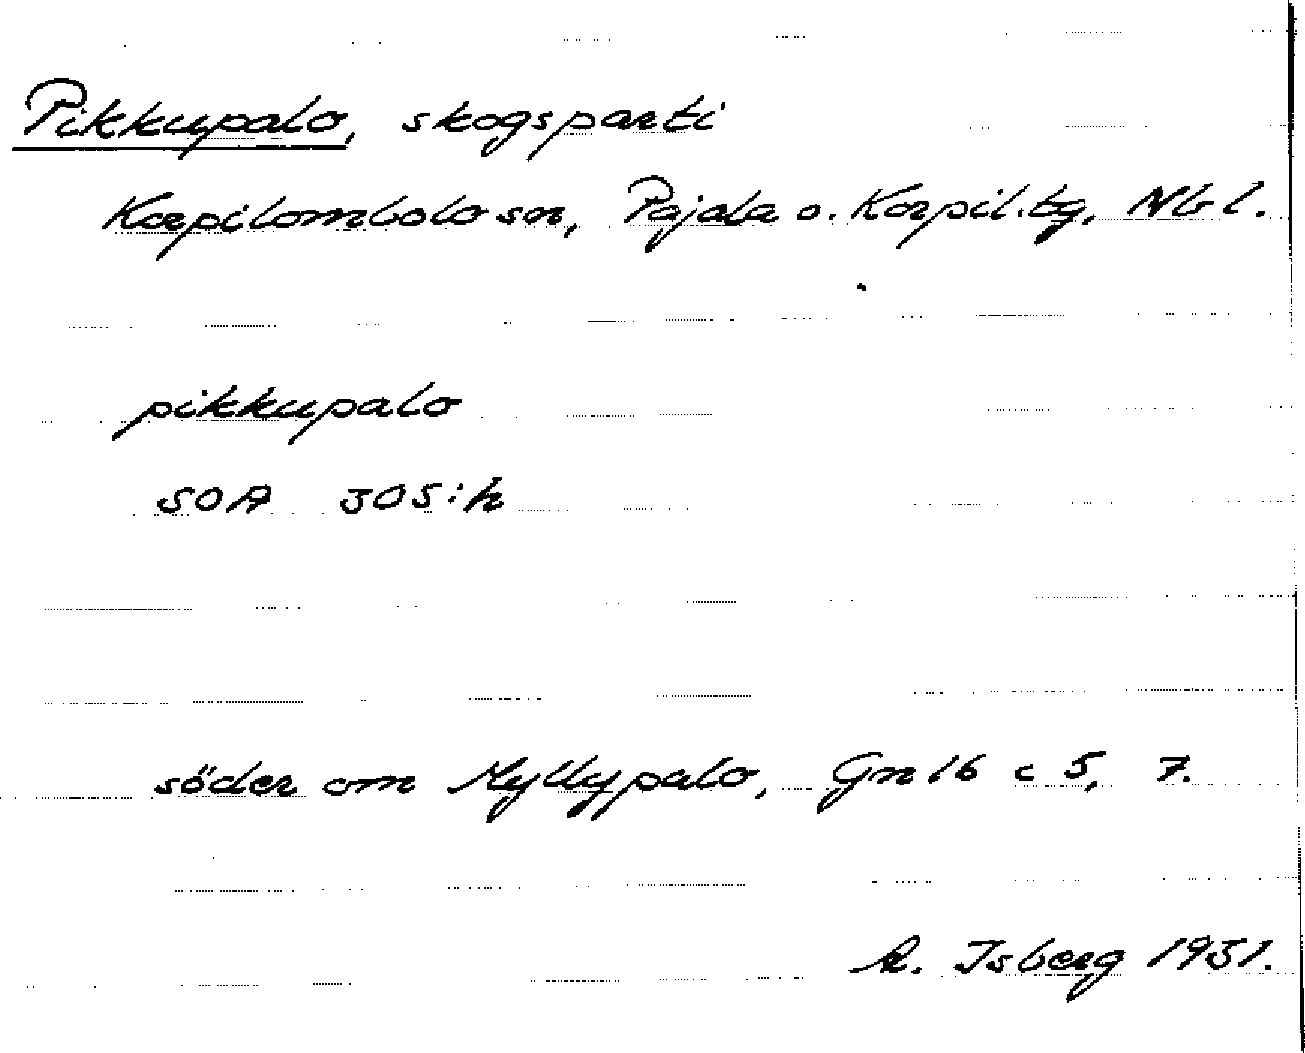 Pikkupalo, skogsparti
Korpilombolo sn, Pajala o. Korpil. tg, Nb l.
pikkupalo
SOA 305:h
söder om Myllypalo, Gn 16 c 5, 7.
R. Isberg 1931.